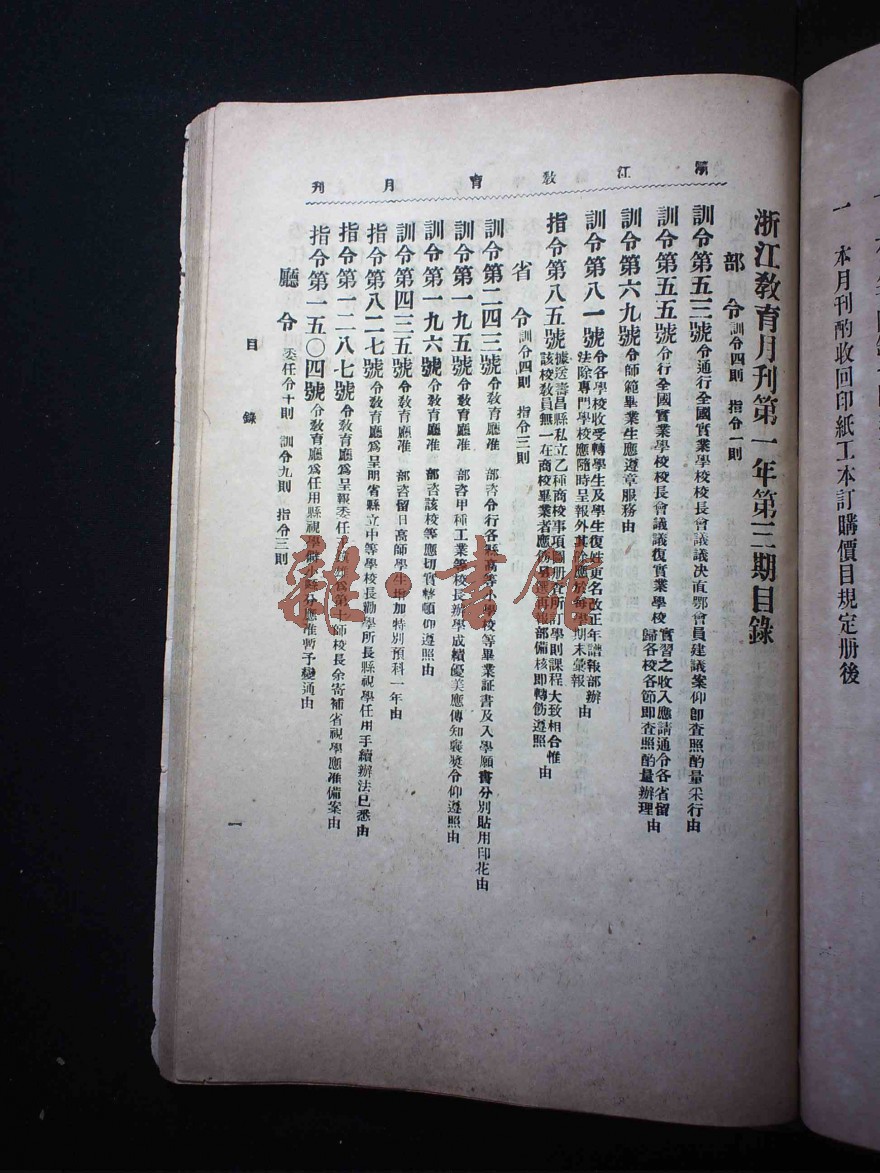 一　本月刊酌收回印紙工本訂購價目規定册後
浙江教育月刊第一年第三期目錄
浙江教育月刊
部令　訓令四則　指令一則
訓令第五三號　令通行全國實業學校校長會議議决直鄂會員建議案仰卽查照酌量采行由
訓令第五五號　令行全國實業學校校長會議議復實業學校實習之收入應請通令各省留歸各校各節即查照酌量辦理由
訓令第六九號　令師範畢業生應遵章服務由
訓令第八一號　令各學校收受轉學生及學生復姓更名改正年譜報部辦法除專門學校應隨時呈報外其餘應於每學期末彙報由
指令第八五號　據送壽昌縣私立乙種商校事項圖册查所訂學則課程大致相合惟該校教員無一在商校畢業者應飭另選再報部備核即轉飭遵照由
省令　訓令四則　指令三則
訓令第二四三號　令教育廳准　部咨令行各縣高等小學校等畢業証書及入學願書分別貼用印花由
訓令第一九五號　令教育廳准　部咨甲種工業等校長辦學成績優美應傳知褒奬令仰遵照由
訓令第一九六號　令教育廳准　部咨該校等應切實整頓仰遵照由
訓令第四三五號　令教育廳准　部咨留日高師學生指加特別預科一年由
指令第八二七號　令教育廳爲呈明省縣立中等學校長勸學所長縣視學任用手續辦法已悉由
指令第一二八七號　令教育廳爲呈報委任　爲第十師校長余寄補省視學應准備案由
指令第一五〇四號　令教育廳爲任用縣視學　應准暫予變通由
廳令　委任令十則　訓令九則　指令三則
目錄
一
雜·書館